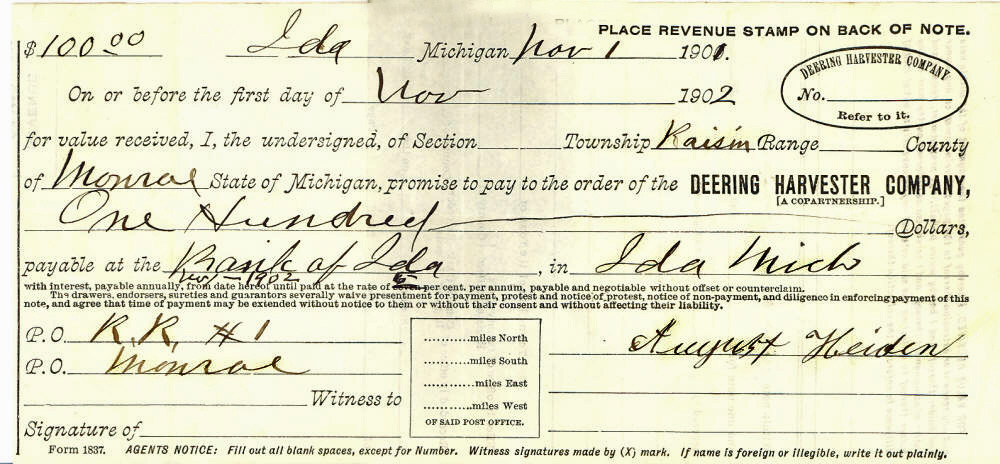 PLACE REVENUE STAMP ON BACK OF NOTE.
$ 100 00 Ida Michigan Nov 1 1901.
DEERING HARVESTER COMPANY
No.
Refer to it.
On or before the first day of Nov 1902
for value received, I, the undersigned, of Section Township Raisin Range County
of Monroe State of Michigan, promise to pay to the order of the DEERING HARVESTER COMPANY,
[A COPARTNERSHIP.]
One Hundred Dollars,
payable at the Bank of Ida, in Ida Mich
Nov 1-1902 6
with interest, payable annually, from date hereof until paid at the rate of seven per cent. per annum, payable and negotiable without offset or counterclaim.
The drawers, endorsers, sureties and guarantors severally waive presentment for payment, protest and notice of protest, notice of non-payment, and diligence in enforcing payment of this
note, and agree that time of payment may be extended without notice to them or without their consent and without affecting their liability.
P.O. R.R. #1
P.O. Monroe
Witness to
Signature of
miles North
miles South
miles East
miles West
OF SAID POST OFFICE.
August Heiden
Form 1837. AGENTS NOTICE: Fill out all blank spaces, except for Number. Witness signatures made by (X) mark. If name is foreign or illegible, write it out plainly.